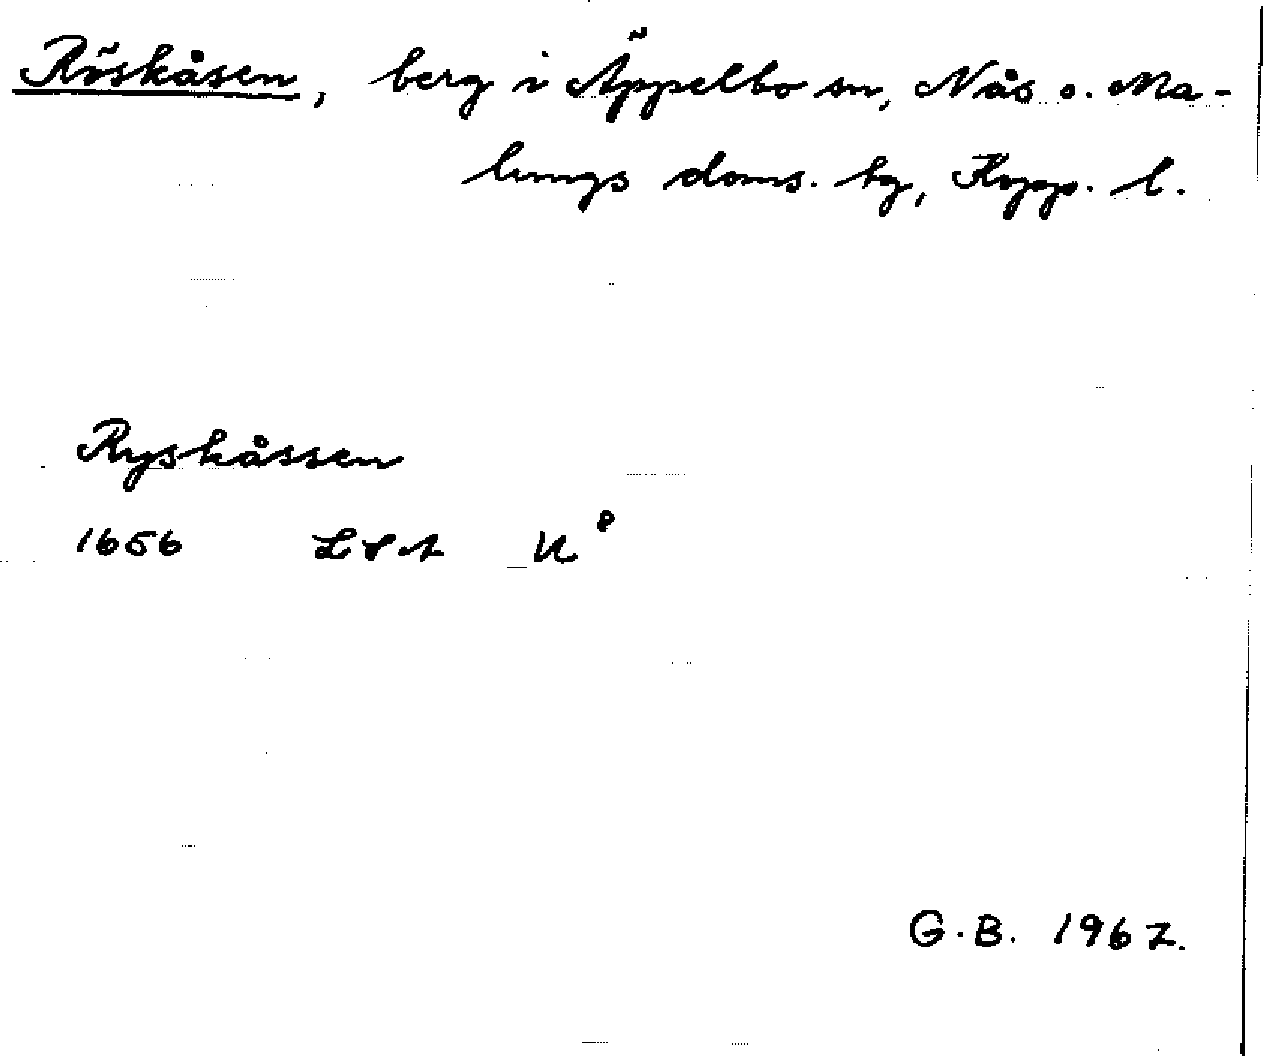 Röskåsen, berg i Äppelbo sn, Nås o. Ma-
lungs doms. tg, Kopp. l.
Ryskåssen
1656 LSA U⁸
G.B. 1967.